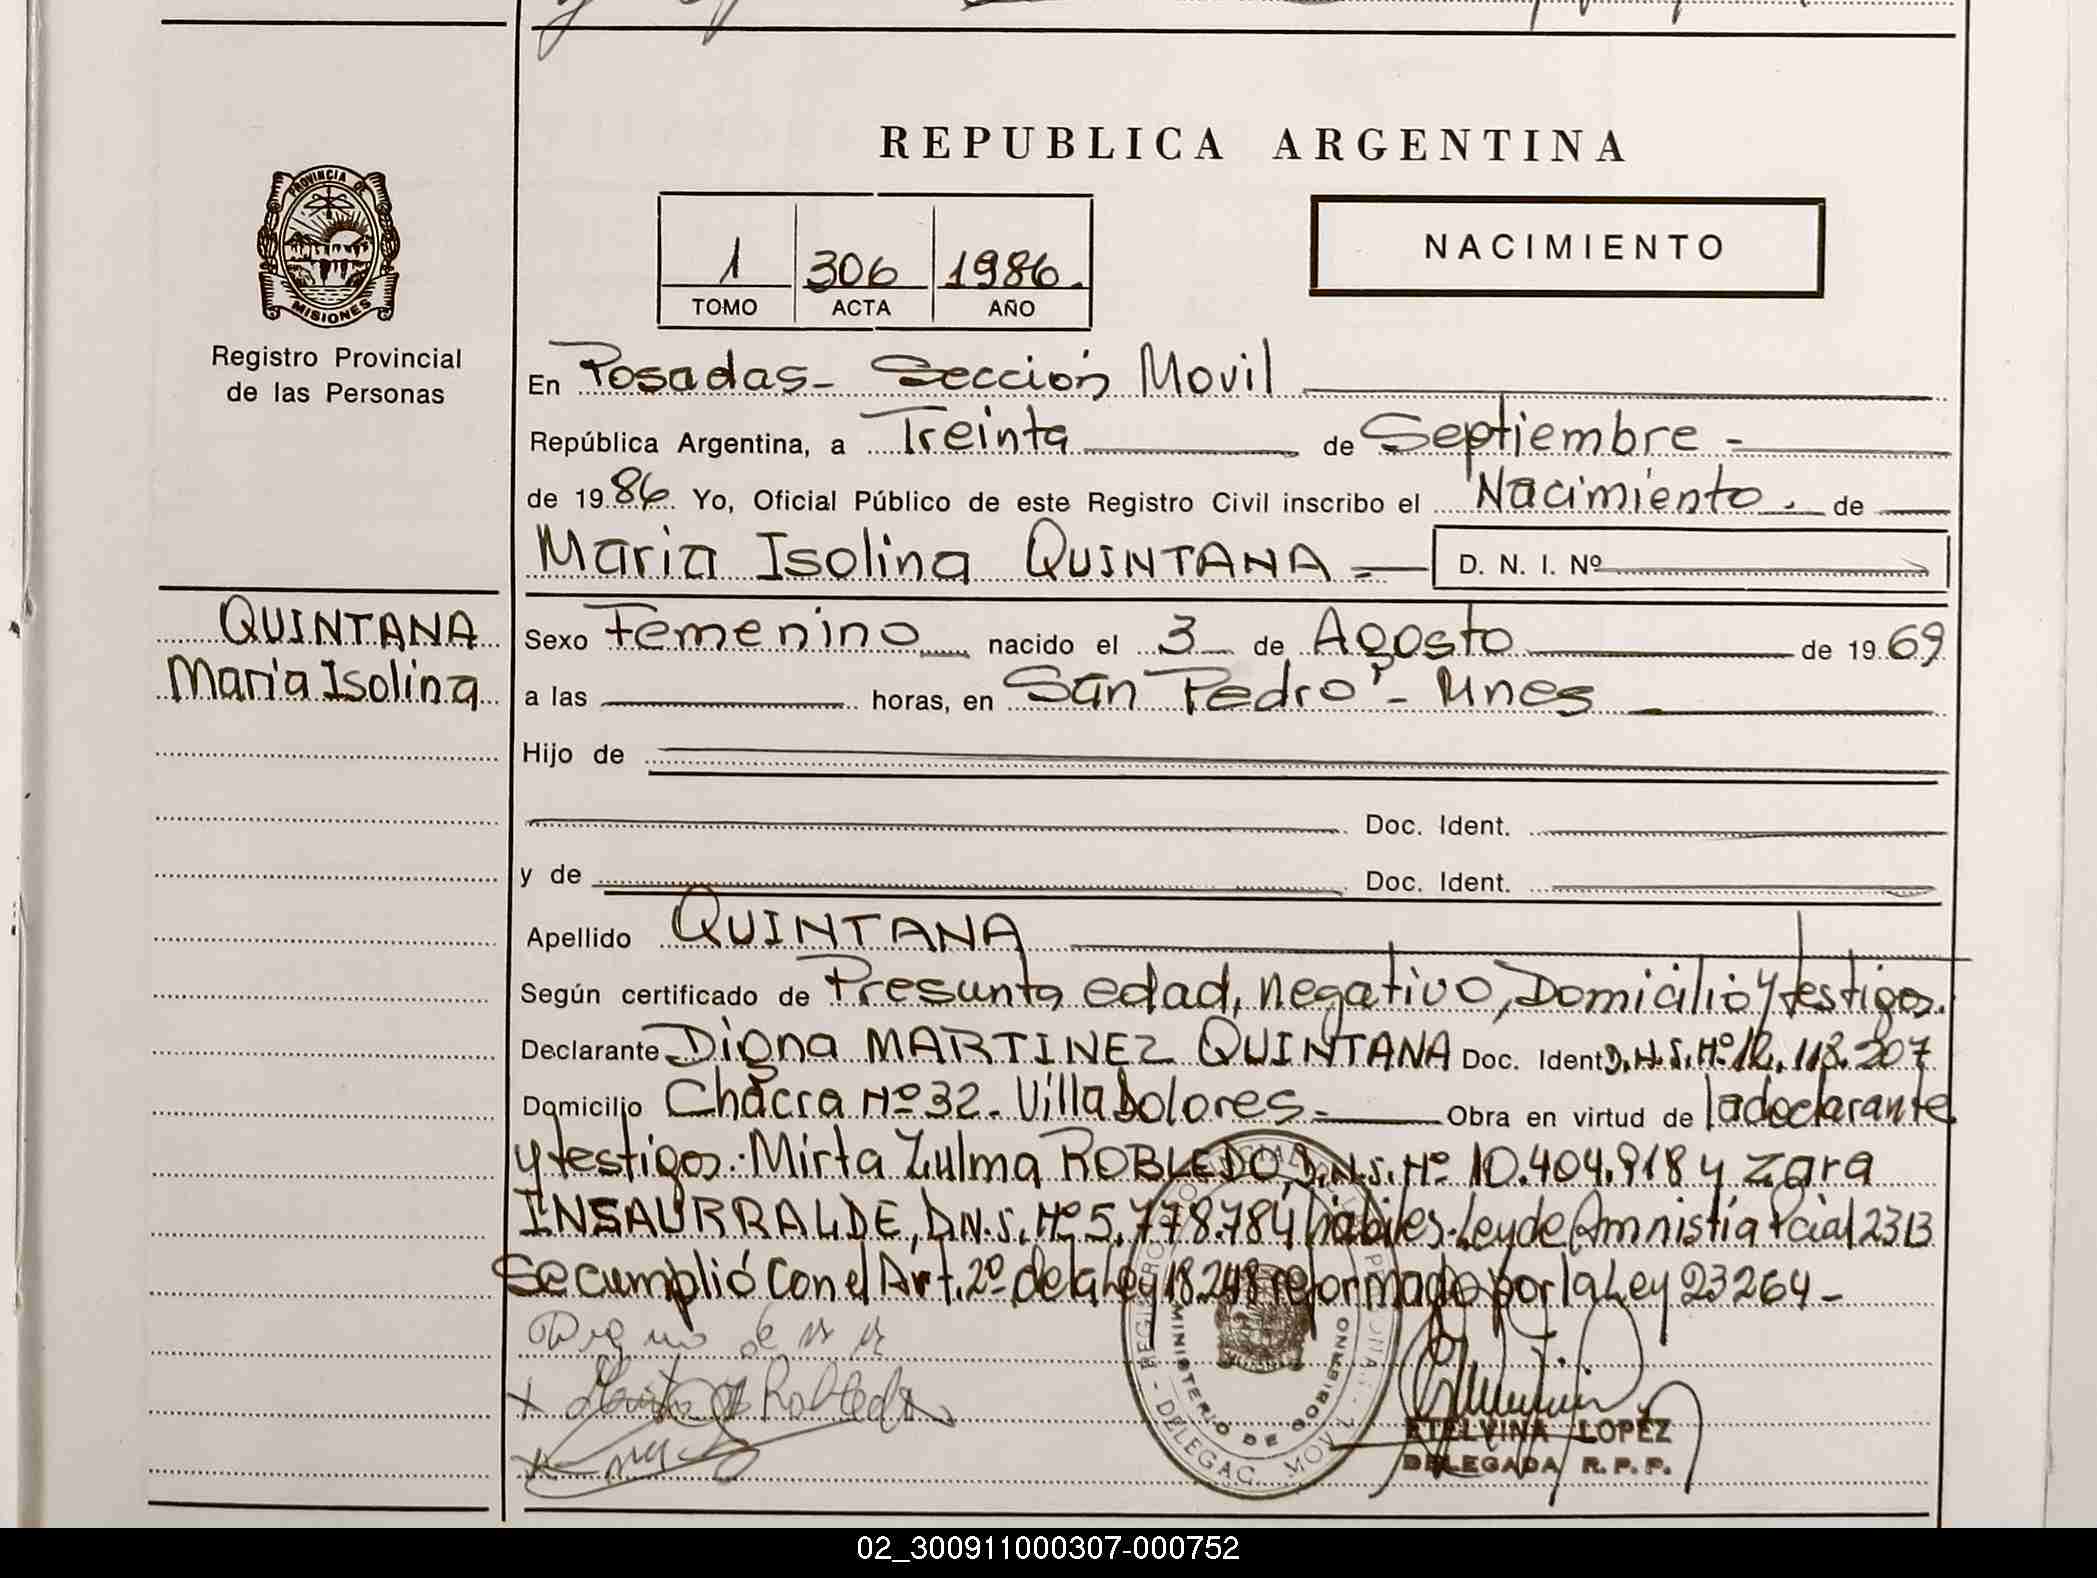 REPUBLICA ARGENTINA
PROVINCIA DE
MISIONES
Registro Provincial
de las Personas
1 306 1986.
TOMO ACTA AÑO
NACIMIENTO
En Posadas- Sección Movil
República Argentina, a Treinta de Septiembre -
de 1986. Yo, Oficial Público de este Registro Civil inscribo el Nacimiento. de
Maria Isolina QUINTANA = D. N. I. Nº
QUINTANA
Maria Isolina
Sexo Femenino nacido el 3 de Agosto de 1969
a las horas, en San Pedro - Mnes
Hijo de
Doc. Ident.
y de Doc. Ident.
Apellido QUINTANA
Según certificado de Presunta edad, negativo, Domicilio y testigos.
Declarante Digna MARTINEZ QUINTANA Doc. Ident D.N.I. Nº 12.113.207
Domicilio Chacra Nº 32. Villa Dolores.- Obra en virtud de la declarante
y testigos: Mirta Zulma ROBLEDO, D.N.I. Nº 10.404.918 y Zara
INSAURRALDE, D.N.I. Nº 5.778.784 hábiles. Ley de Amnistia Pcial 2313
Se cumplió con el Art. 2º de la Ley 18.248 reformado por la Ley 23264 -
REGISTRO PROVINCIAL
MINISTERIO DE GOBIERNO
DELEGAC. MOVIL
ETELVINA LOPEZ
DELEGADA R. P. P.
02_300911000307-000752